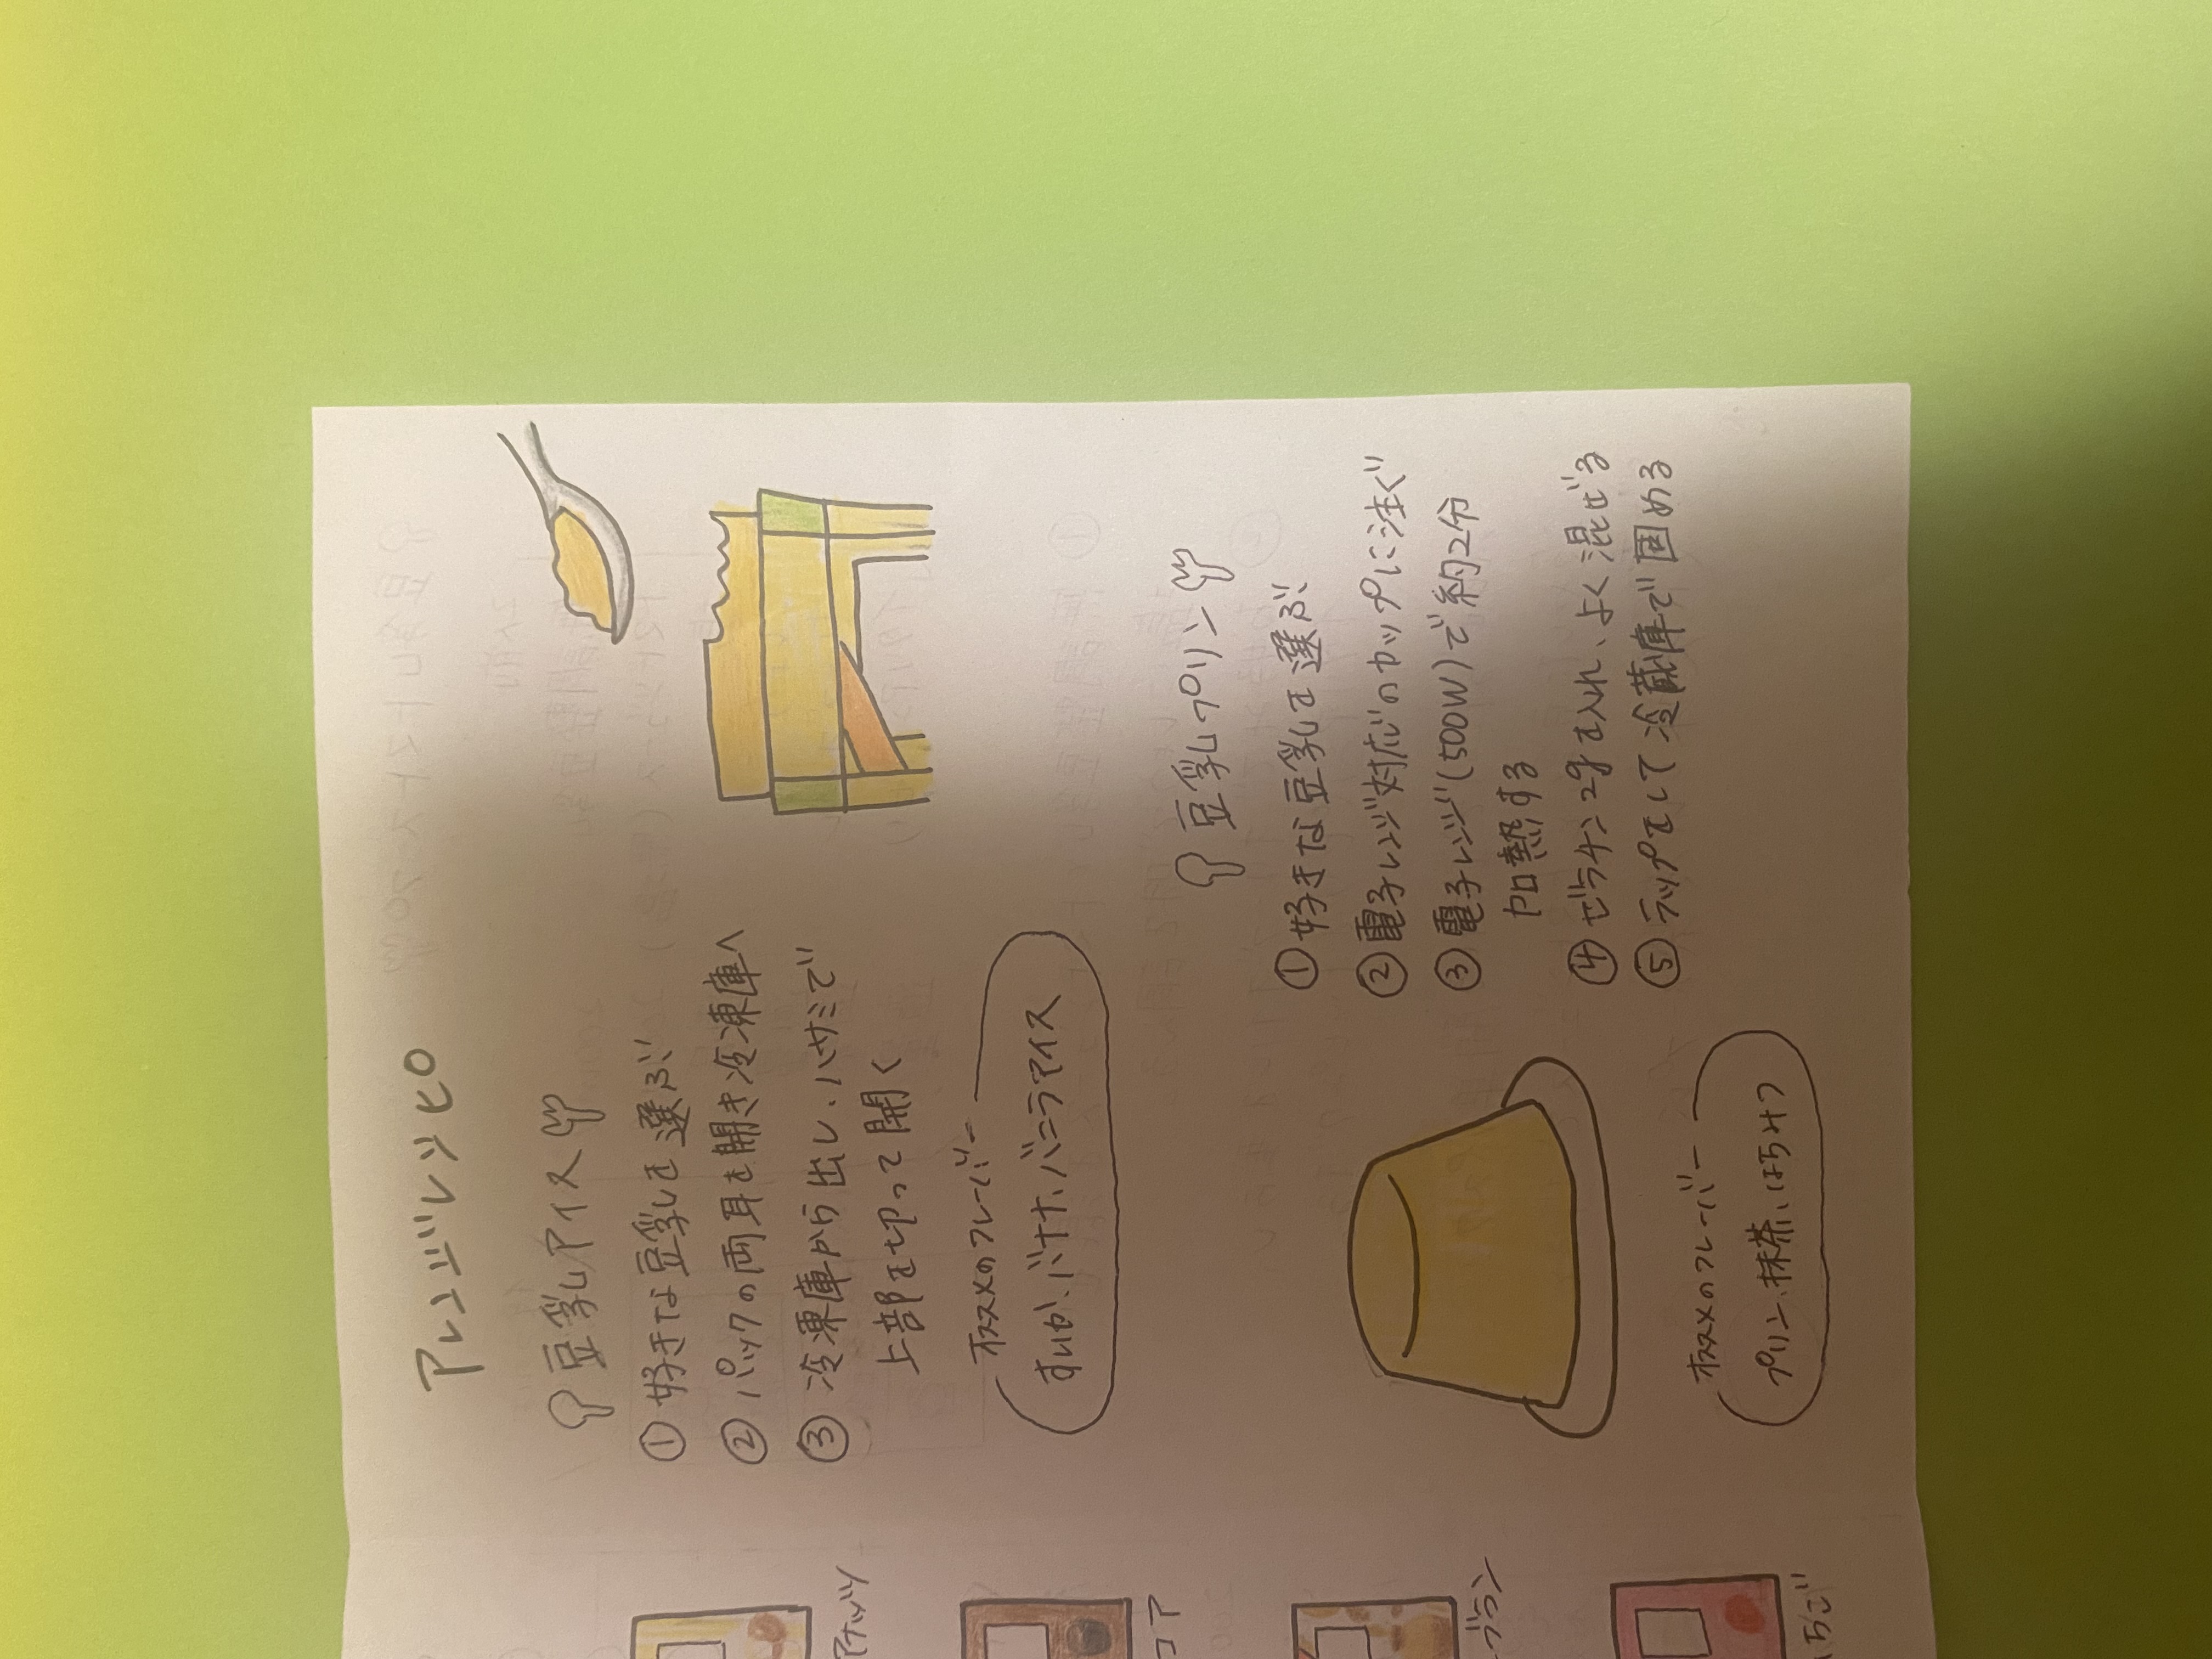 アレンジレシピ
豆乳アイス
① 好きな豆乳を選ぶ
② パックの両耳を開き冷凍庫へ
③ 冷凍庫から出し、ハサミで
上部を切って開く
オススメのフレーバー
すいか、バナナ、バニラアイス
豆乳プリン
① 好きな豆乳を選ぶ
② 電子レンジ対応のカップに注ぐ
③ 電子レンジ(500W)で約2分
加熱する
④ ゼラチン2gを入れ、よく混ぜる
⑤ ラップをして冷蔵庫で固める
オススメのフレーバー
プリン、抹茶、はちみつ
アナッツ
コア
ブラン
ちご